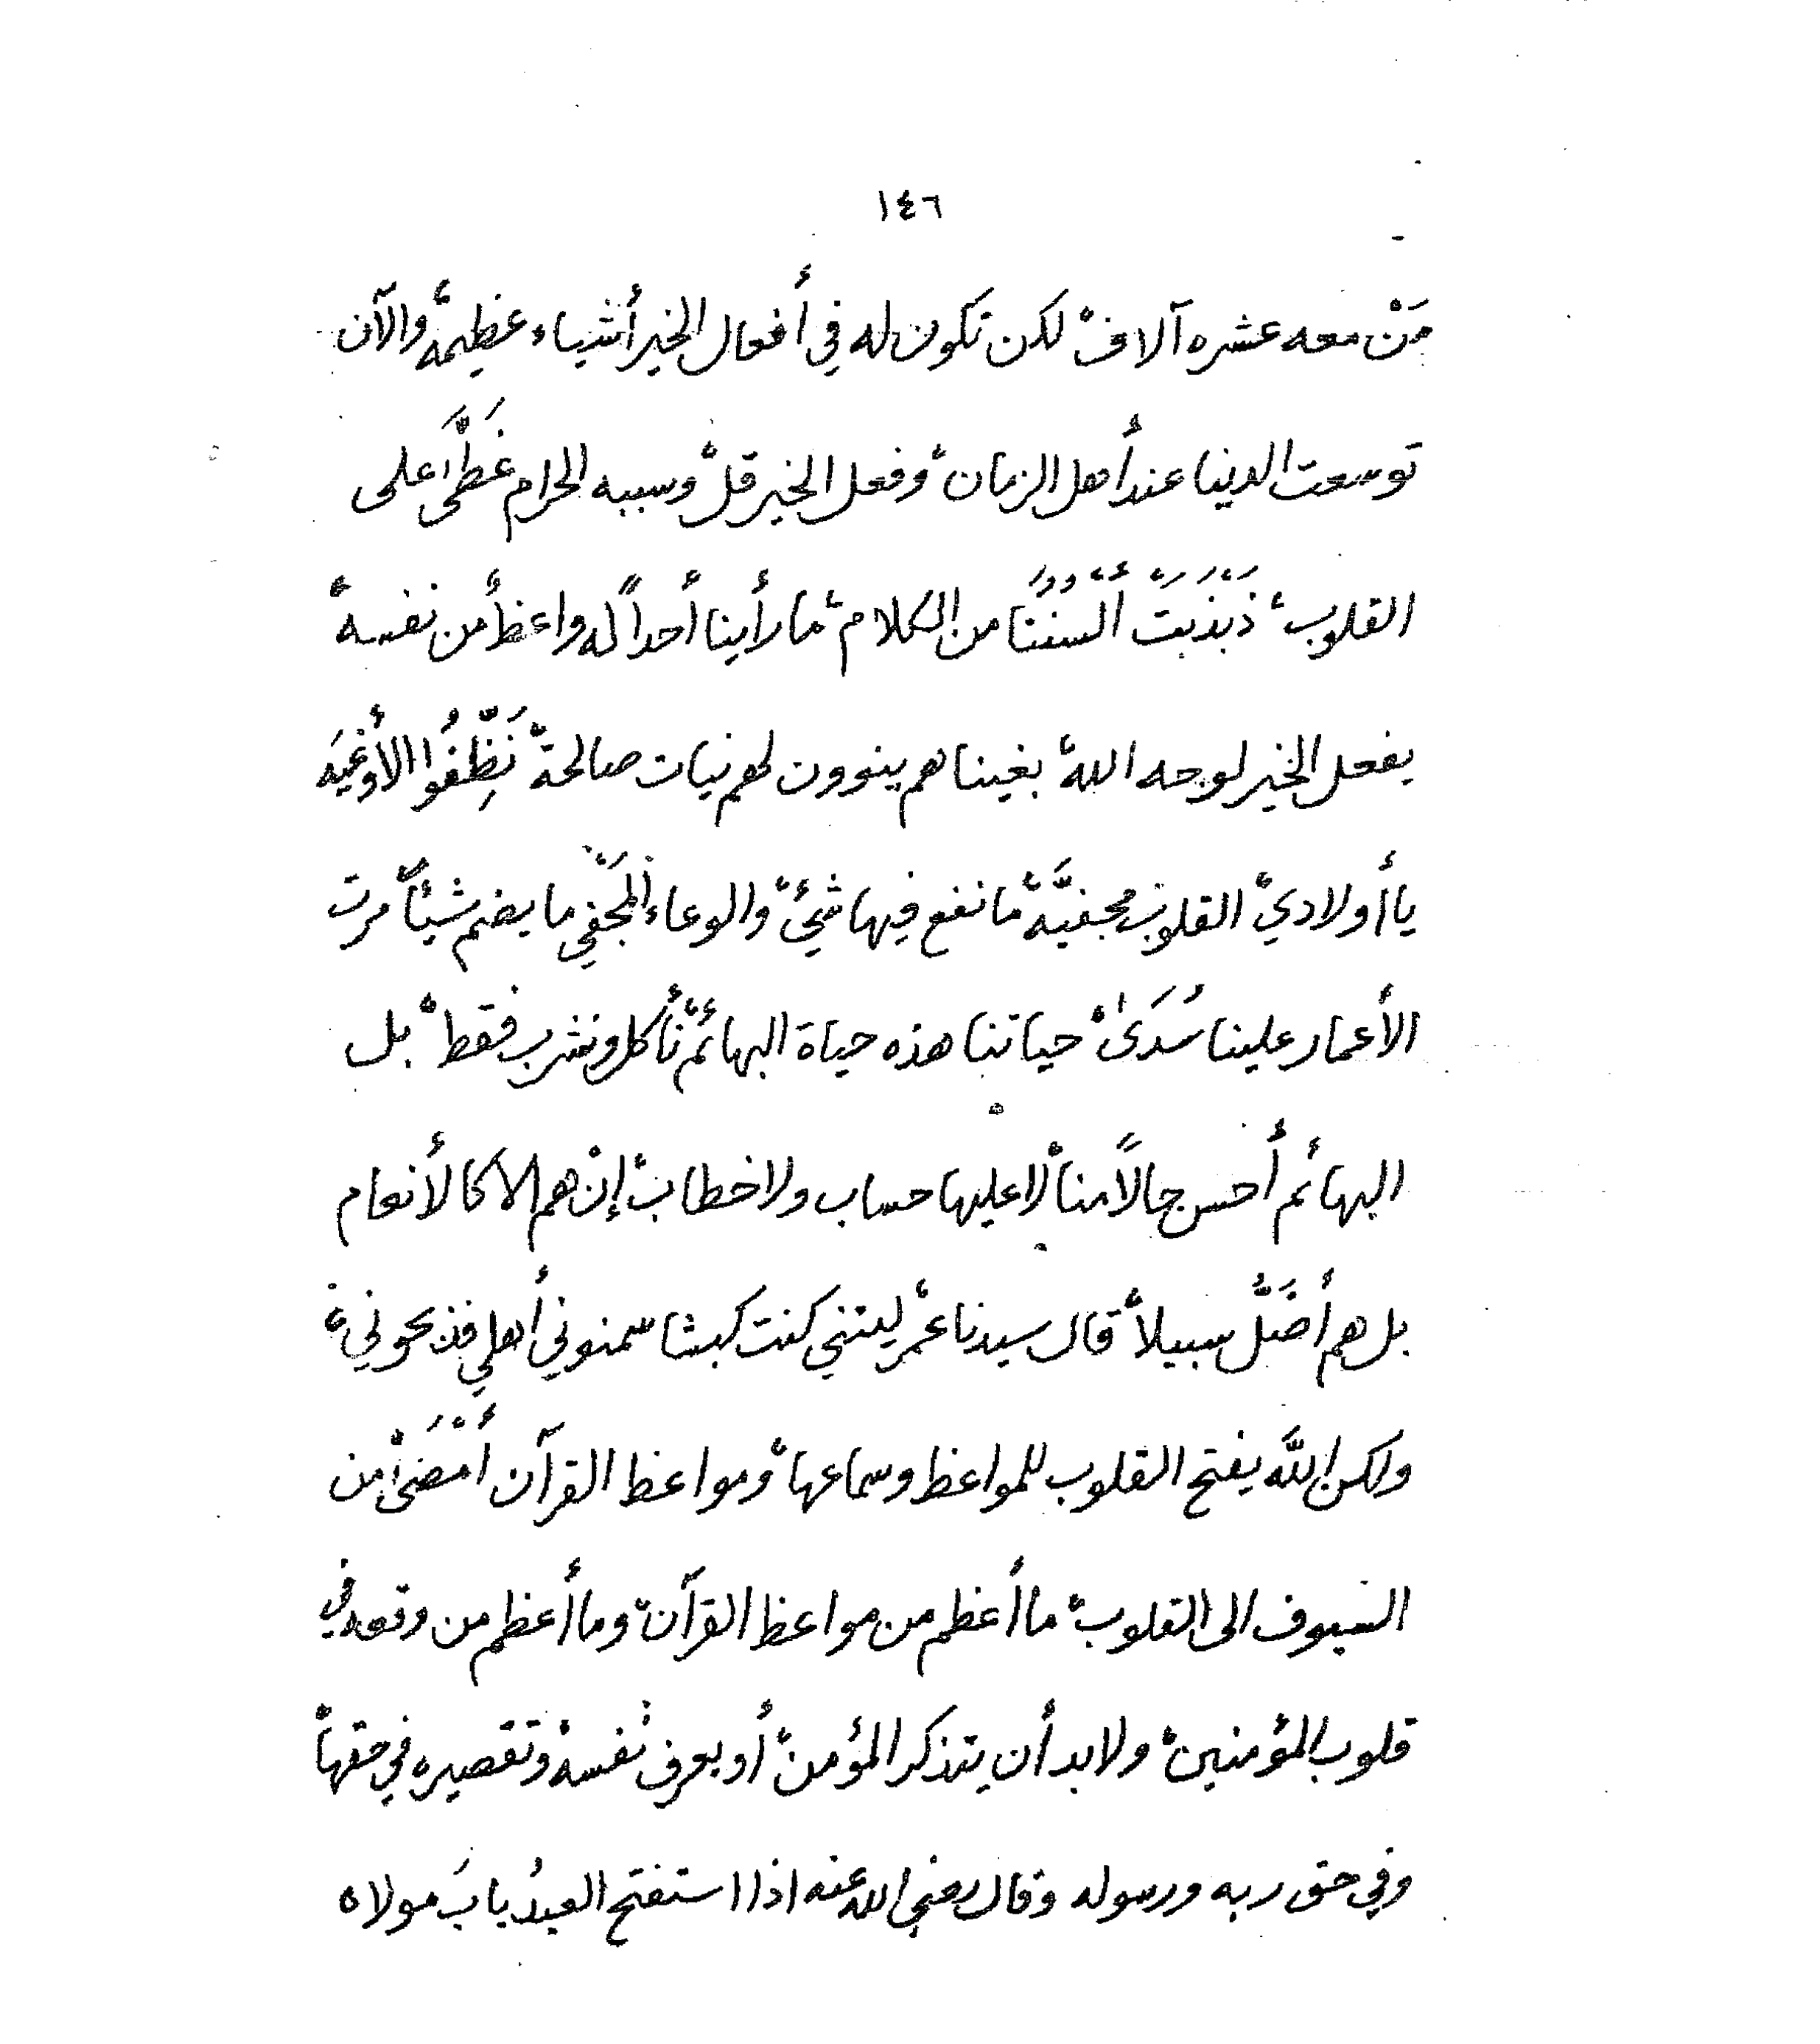 ١٤٦
مَنْ معه عشره آلاف، لكن تكون له في أفعال الخير أشياء عظيمه، والآن
توسعت الدنيا عند أهل الزمان، وفعل الخير قلّ، وسببه الحرام غَطَّى على
القلوب، ذَبْذَبَتْ أَلْسُنُنَا من الكلام، ما رأينا أحداً له واعظ من نفسه،
يفعل الخير لوجه الله، بغيناهم ينوون لهم نيات صالحة، نَظِّفُوا الأوْعيَه
يا أولادي، القلوب مجفيَّه، ما نفع فيها شيء، والوعاء المجَفي ما يضم شيئاً، مرت
الأعمار علينا سُدَىٰ، حياتنا هذه حياة البهائم، نأكل ونشرب فقط، بل
البهائم أحسن حالاً منا، لا عليها حساب ولا خطاب، إنْ هم الا كالأنعام
بل هم أضَلُّ سبيلا، قال سيدنا عمر ليتني كنت كبشا سمنوني أهلي فذبحوني،
ولكن اللَّه يفتح القلوب للمواعظ وسماعها، ومواعظ القرآن أمْضَى من
السيوف الى القلوب، ما أعظم من مواعظ القرآن، وما أعظم من وقعه في
قلوب المؤمنين، ولا بد أن يتذكر المؤمن، أو يعرف نفسه، وتقصيره في حقها،
وفي حق ربه ورسوله وقال رضي الله عنه اذا استفتح العبدُ بابَ مولاه